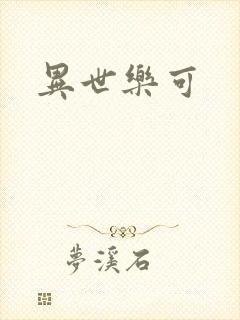 異世樂可
夢溪石